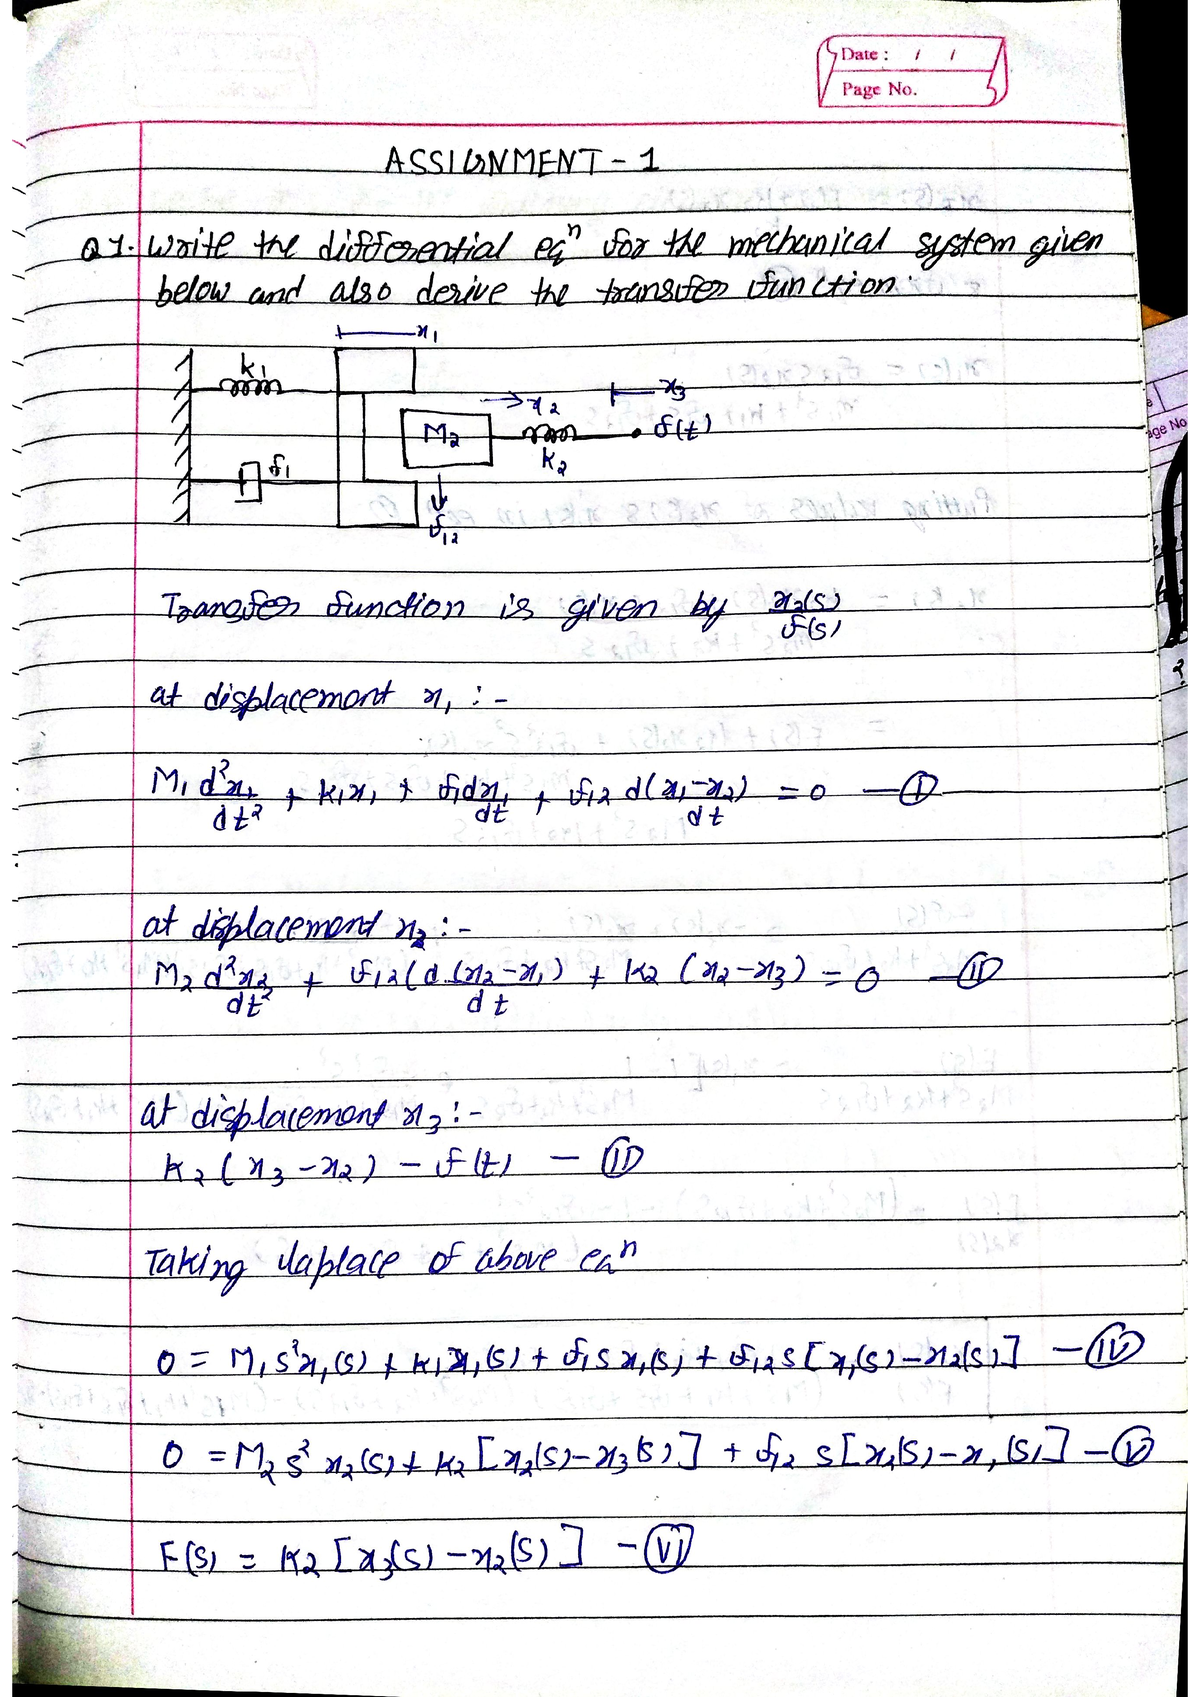 Date : / /
Page No.
ASSIGNMENT - 1
Q1. Write the differential eqⁿ for the mechanical system given
below and also derive the transfer function.
x₁
K₁
x₂
x₃
M₂
f(t)
K₂
f₁
f₁₂
Transfer function is given by x₂(s)/F(s)
at displacement x₁ :-
M₁ d²x₁/dt² + K₁x₁ + f₁dx₁/dt + f₁₂ d(x₁-x₂)/dt = 0 — I
at displacement x₂ :-
M₂ d²x₂/dt² + f₁₂(d(x₂-x₁)/dt + K₂ (x₂-x₃) = 0 — II
at displacement x₃ :-
K₂ (x₃-x₂) - f(t) — III
Taking laplace of above eqⁿ
0 = M₁s²x₁(s) + K₁x₁(s) + f₁s x₁(s) + f₁₂s[x₁(s)-x₂(s)] — IV
0 = M₂s² x₂(s) + K₂[x₂(s)-x₃(s)] + f₁₂ s[x₂(s)-x₁(s)] — V
F(s) = K₂[x₃(s)-x₂(s)] — VI
age No